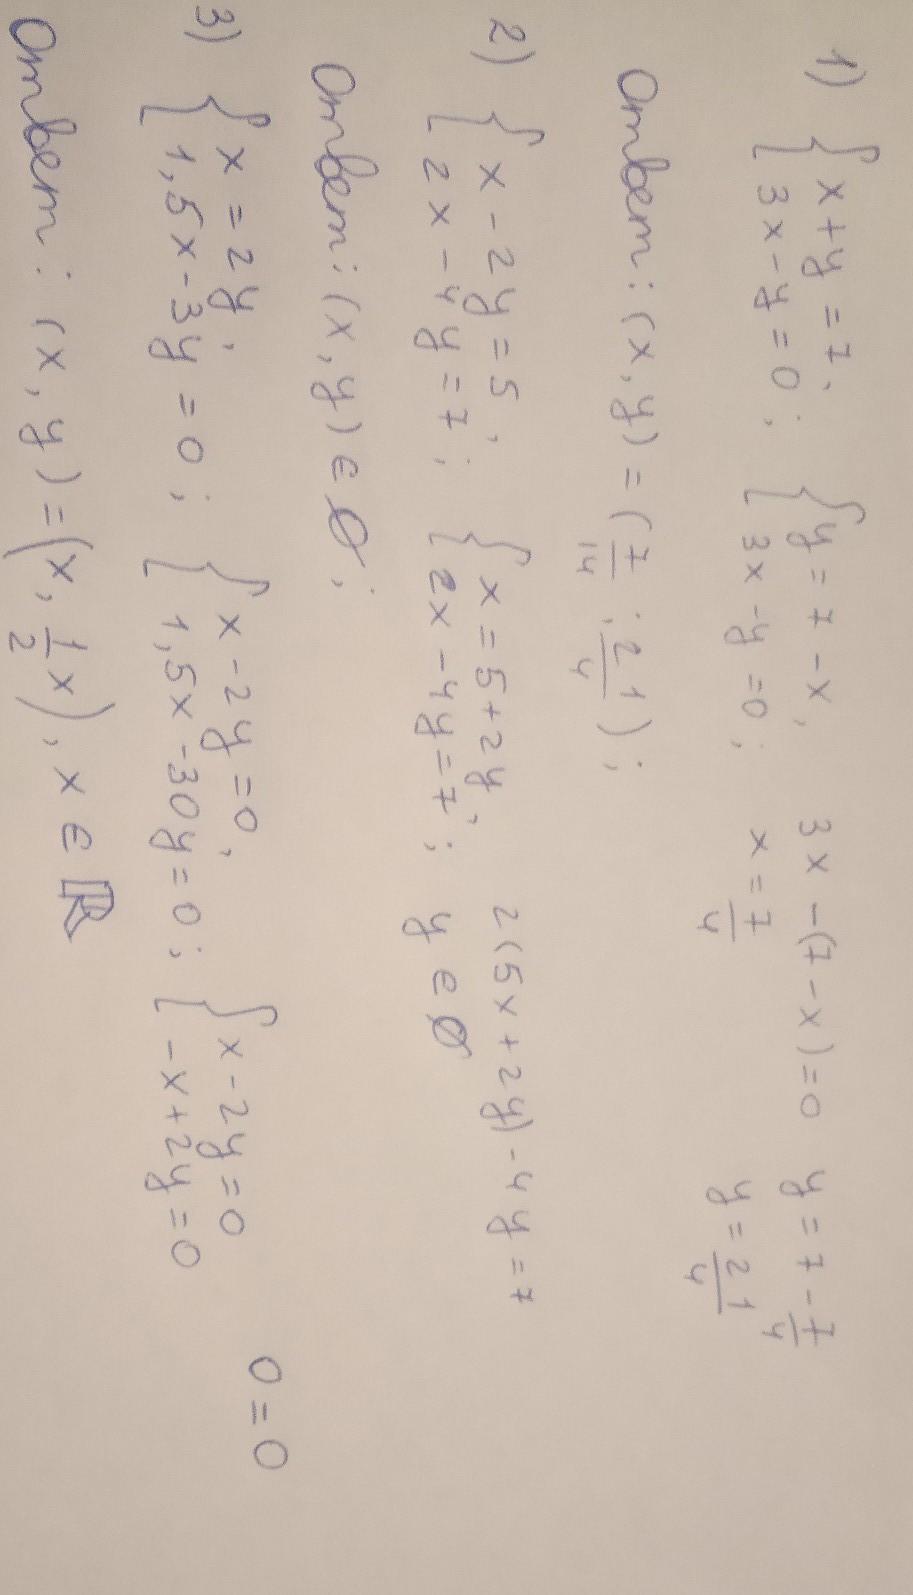 1) { x + y = 7, 3x - y = 0; { y = 7 - x, 3x - y = 0; 3x - (7 - x) = 0 x = 7/4 y = 7 - 7/4 y = 21/4
Ответ: (x, y) = (7/14; 21/4);
2) { x - 2y = 5, 2x - 4y = 7; { x = 5 + 2y, 2x - 4y = 7; 2(5x + 2y) - 4y = 7 y ∈ ∅
Ответ: (x, y) ∈ ∅;
3) { x = 2y, 1,5x - 3y = 0; { x - 2y = 0, 1,5x - 30y = 0; { x - 2y = 0 -x + 2y = 0 0 = 0
Ответ: (x, y) = (x, 1/2 x), x ∈ ℝ